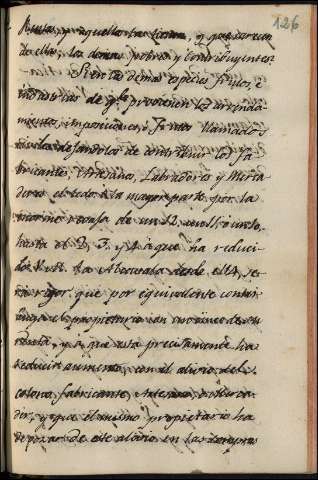 126
Rentas, y aquello las causa, y que carecen
de ellas, los demas pobres y contribuyentes.
Si en las demas especies frutos, e
industrias de que provienen los arrenda-
mientos, imposiciones, i frutos llamados
civiles dejandolos de contribuir los Fa-
bricantes, Artesanos, Labradores y Merca-
deres el todo ó la mayor parte por la
enorme revaja de un 12, un 11, i un 10,
hasta el 2, 3, y 4 a que ha reduci-
do V. M. la Alcavala desde el 14, se-
rá rigor que por equivalente contri-
buya el propietario con un cinco de su
renta, y si que esta precisamente ha
recibir aumento, con el alivio del
colono, fabricante, Artesano, o Merca-
der, y que el mismo propietario ha
de gozar de este alivio en las compras